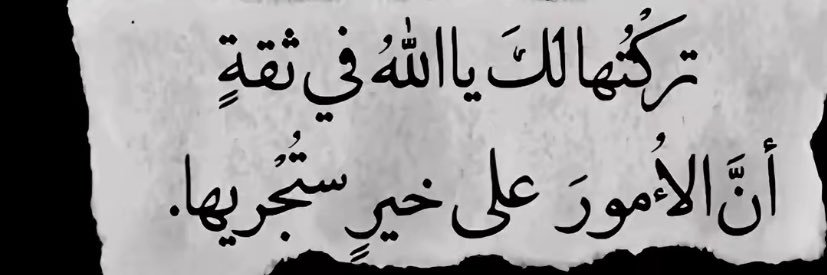 تركْتُها لكَ يا اللهُ في ثقةٍ
أنَّ الأُمورَ على خيرٍ ستُجْريها.